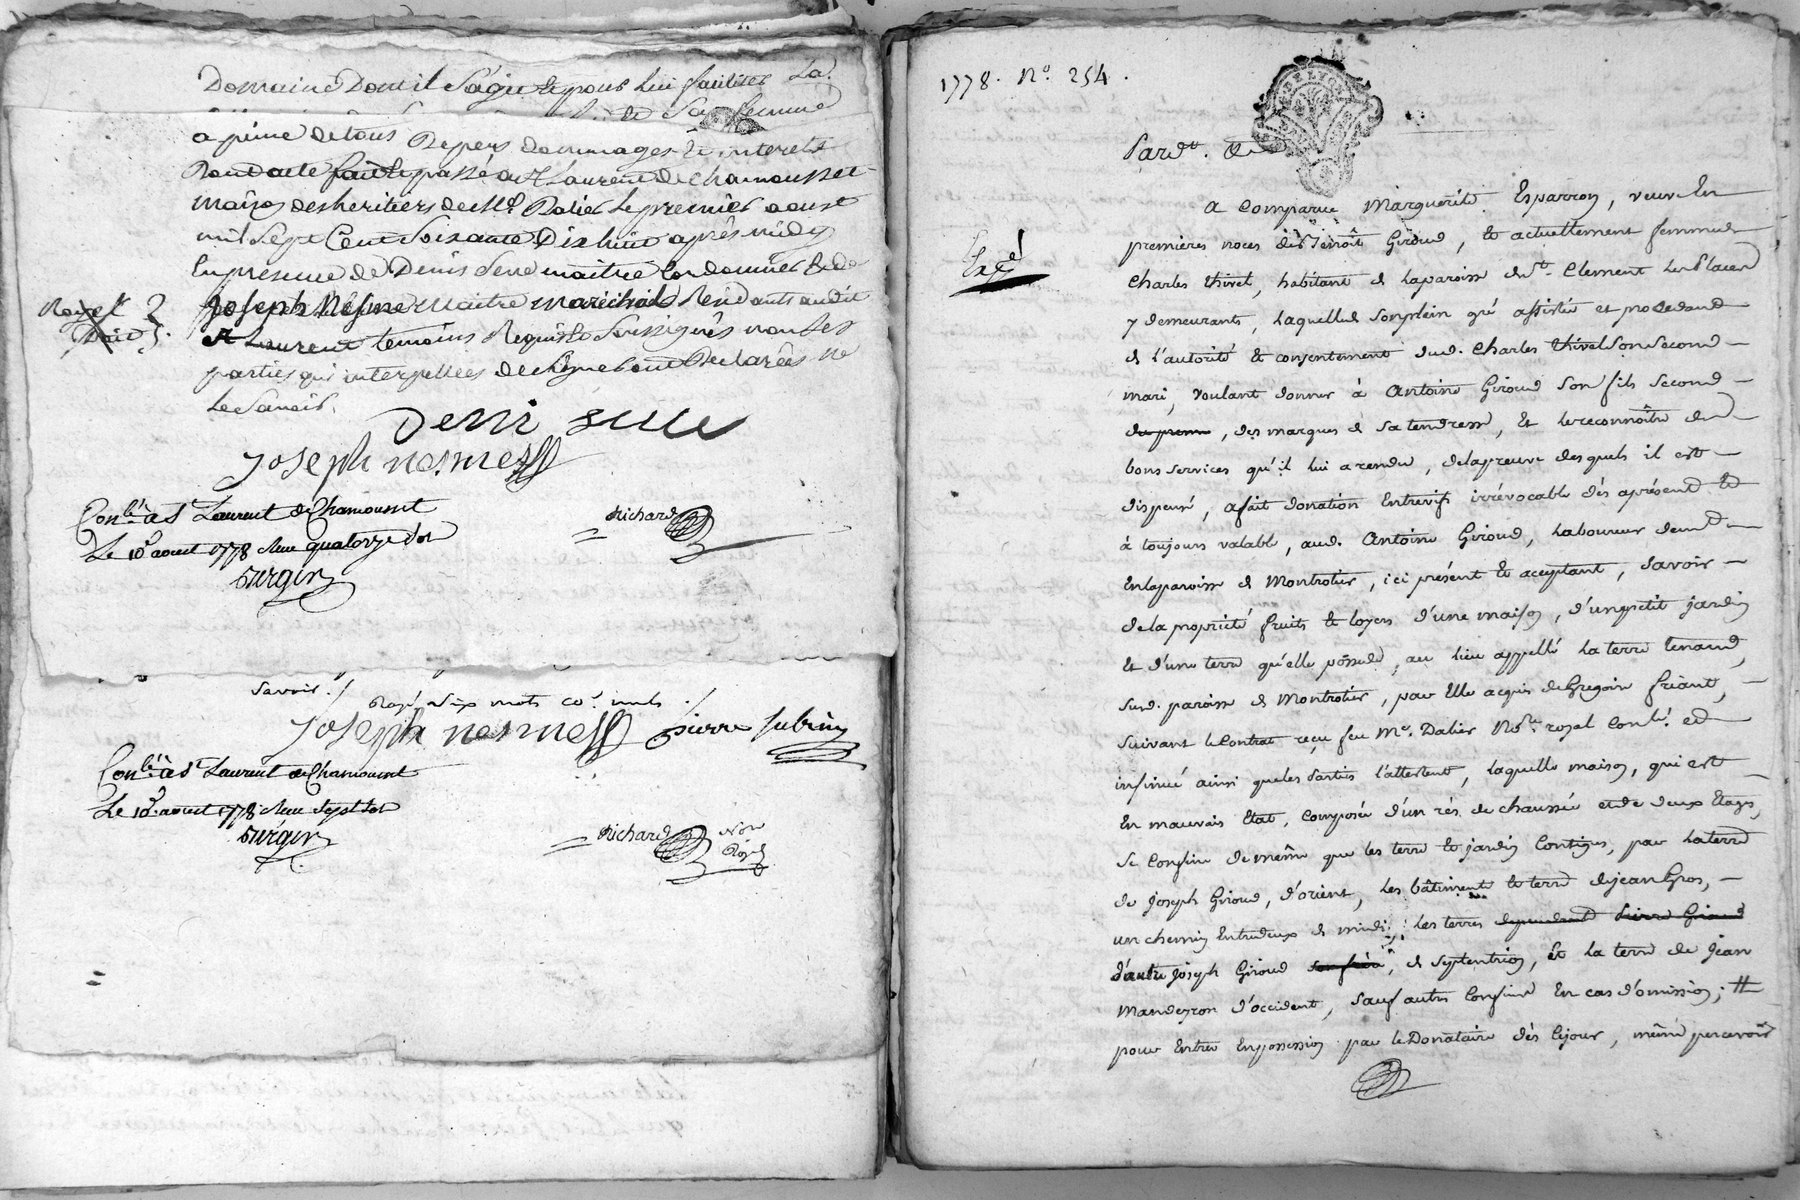 Domaine Dont il S'agit & pour lui faciliter La
de Sa femme
a peine de tous Depens dommages & interets
Dont acte fait & passé a St Laurent de Chamousset
maison des heritiers de Me Dalier le premier aoust
mil Sept Cent Soixante Dix huit après midy
En presence de Denis Sere maitre Cordonnier & de
Joseph Nesme Maitre Maréchal Résidants audit
St Laurent temoins Requis & Soussignés non les
parties qui interpellées de Signer ont Declarées ne
le Savoir.
Deni sere
Joseph nesme
Conlé à St Laurent de Chamousset
Le 10 aoust 1778 Reçu quatorze sols
Surgin
Richard
Savoir ./
Rayé dix mots co.e nuls
Joseph nesme pierre Subrin
Conlé à St Laurent de Chamousset
Le 10 aoust 1778 Reçu Sept sols
Surgin
Richard Nore
Royal
1778. No. 254.
DE LYON
Pardt.
A Comparue Marguerite Esparron, veuve En
premieres noces de Benoît Giroud, & actuellement femme
Charles thivel, habitant de la paroisse de St. Clement Les Places
y demeurants, Laquelle de son plein gré assistée et procedant
de l'autorité & consentement dud. Charles thivel Son Second
mari, voulant donner à Antoine Giroud Son fils Second
du premier, des marques de Sa tendresse, Et le reconnoître des
bons Services qu'il lui a rendu, de la preuve des quels il est
dispensé, a fait donation Entrevifs irrévocable dès aprésent &
à toujours valable, aud. Antoine Giroud, Laboureur demt
En la paroisse de Montrotier, ici présent & acceptant, Savoir
de la propriété fruits & loyers d'une maison, d'un petit jardin
Et d'une terre qu'elle possede, au lieu appellé La terre tenaud,
Sud. paroisse de Montrotier, par Elle acquis de Gregoire friant,
Suivant le Contrat reçu feu Me. Dalier Nore. royal Conlé. et
insinué ainsi que les parties l'attestent, Laquelle maison, qui est
En mauvais Etat, Composée d'un rés de chaussée et de deux Etages,
Se Confine de même que les terre & jardin Contigus, par La terre
de Joseph Giroud, d'orient, Les bâtiments & terre de jean Gros,
un chemin Entredeux de midi; Les terres dependant Pierre Giroud
d'autre Joseph Giroud son frère, de Septentrion, Et La terre de Jean
Mandeyron d'occident, Sauf autres Confins En cas d'omission; #
pour Entrer En possession par le Donataire dès Cejour, même percevoir